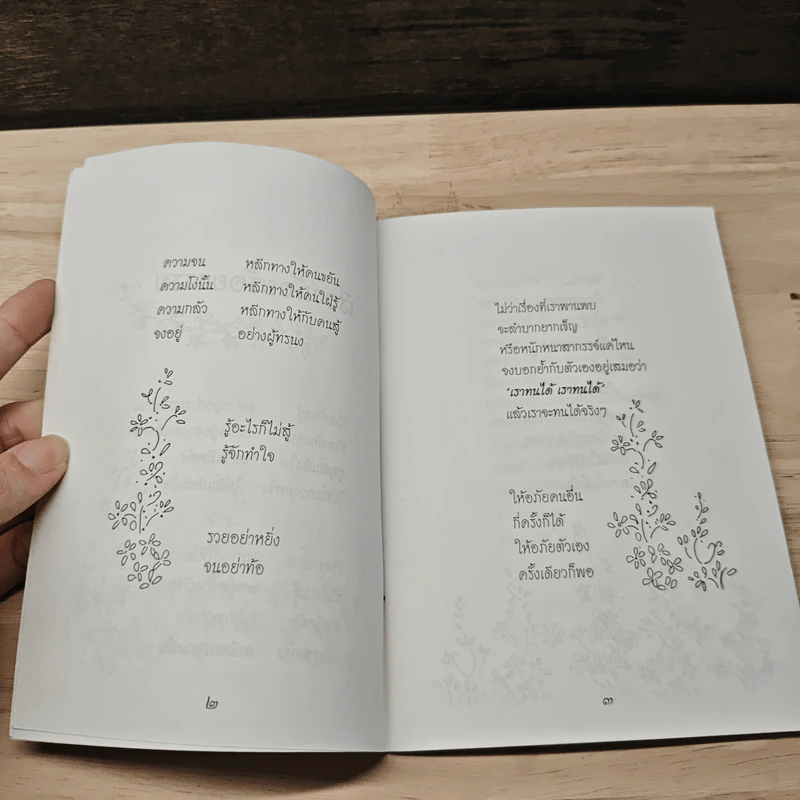 ความจน หลีกทางให้คนขยัน
ความโง่นั้น หลีกทางให้คนใฝ่รู้
ความกลัว หลีกทางให้กับคนสู้
จงอยู่ อย่างผู้ทรนง
รู้อะไรก็ไม่สู้
รู้จักทำใจ
รวยอย่าหยิ่ง
จนอย่าท้อ
๒
ไม่ว่าเรื่องที่เราพานพบ
จะลำบากยากเข็ญ
หรือหนักหนาสากรรจ์แค่ไหน
จงบอกย้ำกับตัวเองอยู่เสมอว่า
"เราทนได้ เราทนได้"
แล้วเราจะทนได้จริงๆ
ให้อภัยคนอื่น
กี่ครั้งก็ได้
ให้อภัยตัวเอง
ครั้งเดียวก็พอ
๓